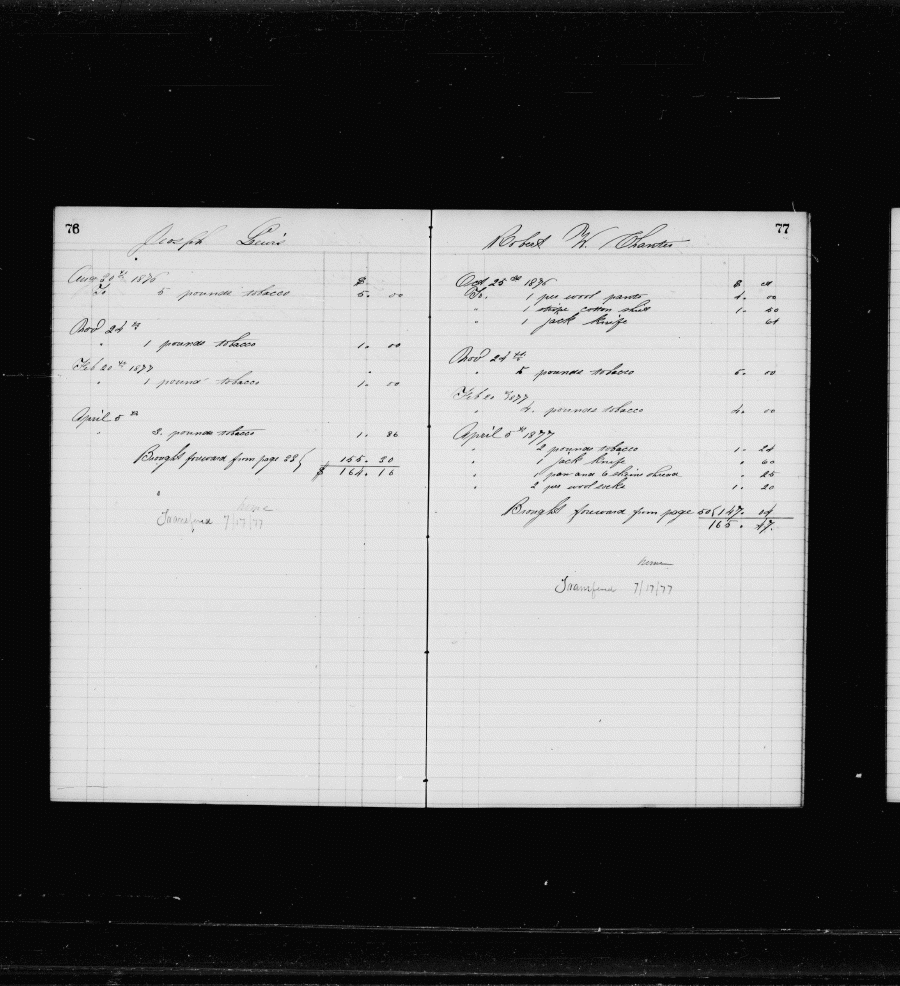 76
Joseph Lewis
Aug 29th 1876 $
To 5 pounds tobacco 5. 00
Nov 24th
" 1 pounds tobacco 1. 00
Feb 20th 1877
" 1 pound tobacco 1. 00
April 5th
" 3. pounds tobacco 1. 86
Brought forward from page 28 { 155. 30
$ 164. 16
Transferred 7/17/77
77
Robert W
Oct 25th 1876 $ ct
To. 1 prs wool pants 4. 00
" 1 cotton shirt 1. 50
" 1 jack knife 64
Nov 24th
" 5 pounds tobacco 5. 00
Feb 20 1877
" 4. pounds tobacco 4. 00
April 5th 1877
" 2 pounds tobacco 1. 24
" 1 jack knife " 60
" 1 pan and 6 skeins thread " 25
" 2 prs wool socks 1. 20
Brought forward from page 50 { 147. 04
165. 47.
Transferred 7/17/77